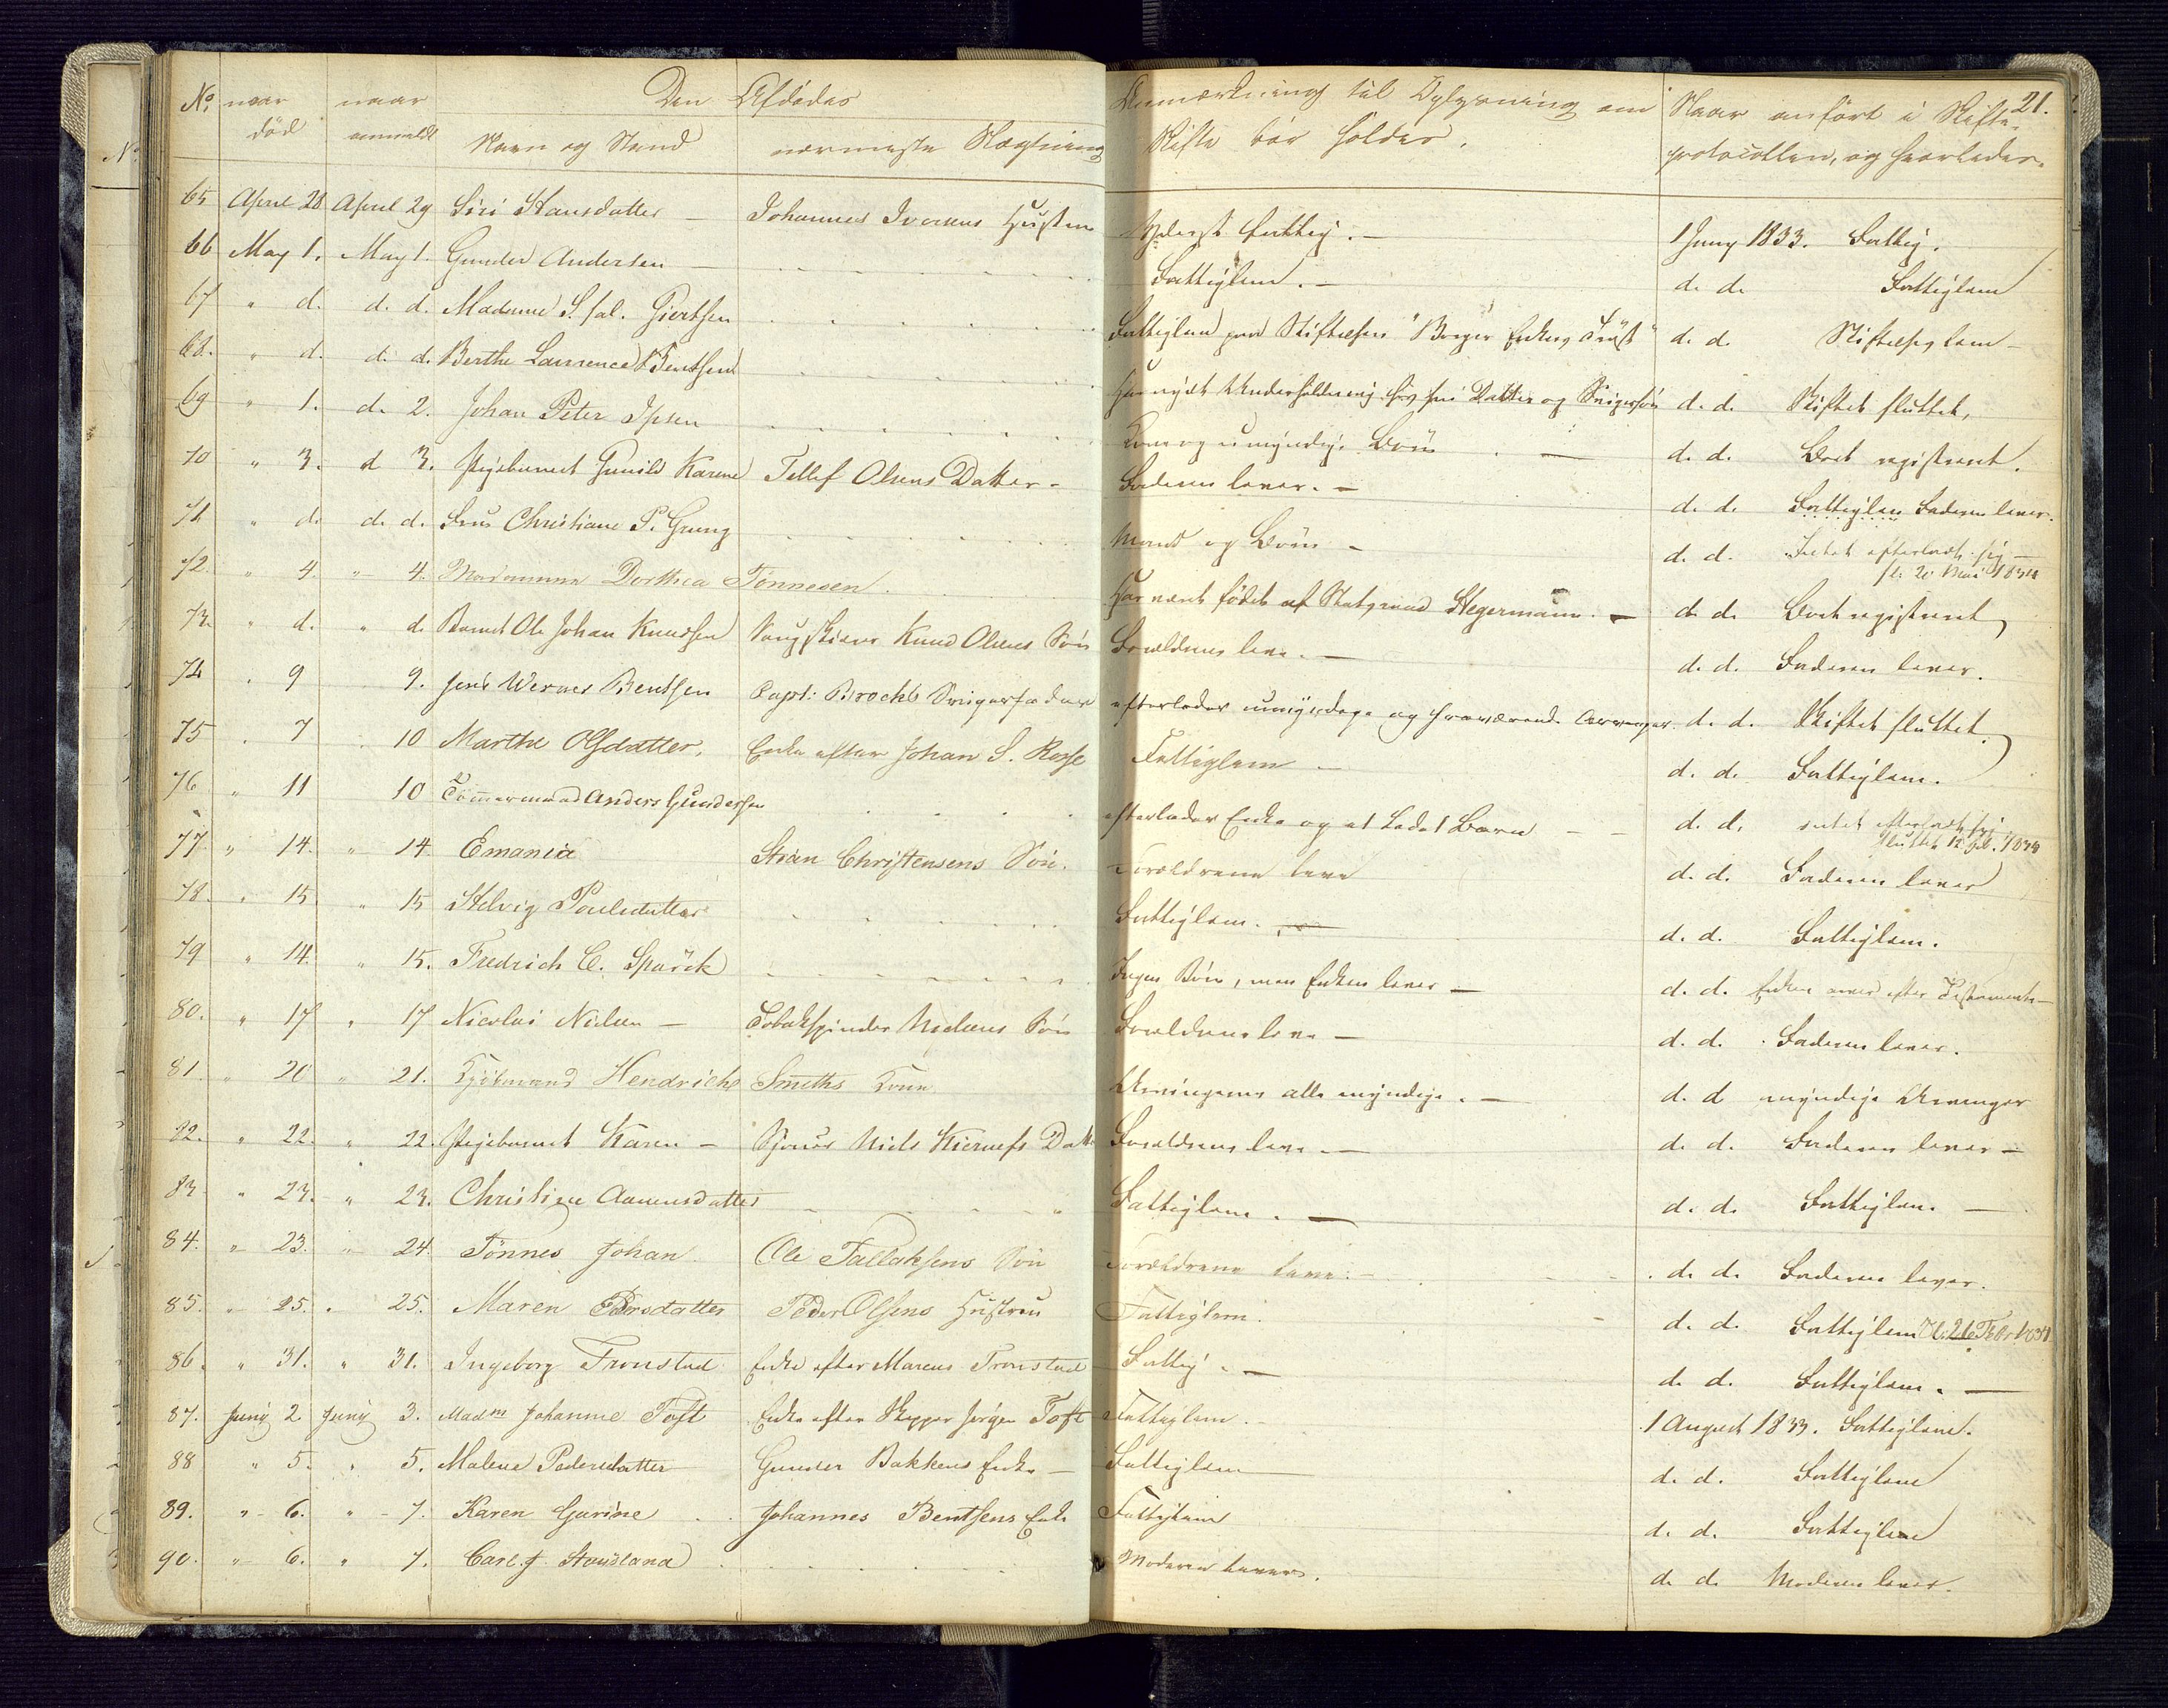 No naar naar Den Afdødes Anmærkning til Oplysning om Naar anført i Skifte- 21.
død anmeldt Navn og Stand nærmeste Slægtning Skifte bør holdes. protocollen, og hvorledes.
65 April 28 April 29 Siri Hansdatter — Johannes Iversens Hustru Yderst fattig. — 1 Juny 1833. Fattig.
66 May 1. May 1. Gunder Andersen — Fattiglem. — d. d. Fattiglem
67 " d. d. d. Madame S. sal. Giertsen Fattiglem paa Stiftelsen "Borger Enkers Trøst" d. d. Stiftelseslem —
68. " d. d. d. Berthe Laurence Bentsen Har nydt Underholdning hos sin Datter og Svigersøn d. d. Skiftet sluttet,
69 " 1. d. 2. Johan Peter Ipsen Kone og umyndige Børn — d. d. Boet registreret.
70 " 3. d 3. Pigebarnet Gunild Karene Tellef Olsens Datter — Faderen lever. — d. d. Fattiglem Faderen lever.
71 " d. d. d. Frue Christiane P. Grung Mand og Børn — d. d. Intet efterladt sig —
sl: 20 Mai 1834
72. " 4. " 4. Madamme Dorthea Tønnesen Har været født af Statsraad Hegermann. — d. d. Boet registreret
73. " d. " d. Barnet Ole Johan Knudsen Knud Olsens Søn Forældrene leve. — d. d. Faderen lever.
74 . 9 9. Jens Werner Bentsen Capt: Brochs Svigerfader efterlader umyndige og fraværende Arvinger. d. d. Skiftet sluttet.
75 . 7 . 10 Marthe Olsdatter. Enke efter Johan S. Rosse Fattiglem — d. d. Fattiglem.
76. " 11 10 Tømmermand Anders Gundersen efterlader Enke og et Ledet Barn — — d. d. intet efterladt sig
sluttet 12 1834
77. " 14. " 14. Emania Stian Christensens Søn. Forældrene leve d. d. Faderen lever
78. " 15 " 15 Helvig Poulsdatter Fattiglem. — d. d. Fattiglem.
79 " 14. " 15. Fredrich C. Sparck Ingen Børn, men Enken lever — d. d. Enken arver efter Testamente —
80. " 17 " 17 Nicolai Nielsen — Tobakspinder Nielsens Søn Forældrene leve — d. d. Faderen lever.
81. " 20 " 21. Kjøbmand Hendrich Smiths Kone Arvingerne alle myndige. — d. d myndige Arvinger
82. " 22. " 22. Pigebarnet Karen — Niels Datt. Forældrene leve — d. d. Faderen lever —
83 " 23. " 23. Christine Aanensdatter Fattiglem. — d. d. Fattiglem. —
84. " 23. " 24. Tønnes Johan Ole Tallaksens Søn Forældrene leve. — d. d. Faderen lever.
85. " 25. " 25. Maren Persdatter Peder Olsens Hustru Fattiglem. d. d. Fattiglem Febr 1834
86. " 31. " 31. Ingeborg Tronstad Enke efter Marcus Tronstad Fattig. — d. d. Fattiglem. —
87. Juny 2. Juny 3. Madme Johanne Toft Enke efter Skipper Jørgen Toft Fattiglem. — 1 August 1833. Fattiglem.
88 " 5. " 5. Malene Pedersdatter Gunder Bakkens Enke — Fattiglem — d. d. Fattiglem
89. " 6. " 7. Karen Gurine Johannes Bentsens Enke Fattiglem d. d. Fattiglem
90. " 6. " 7. Carl J. Staudland Moderen lever. d. d. Moderen lever.